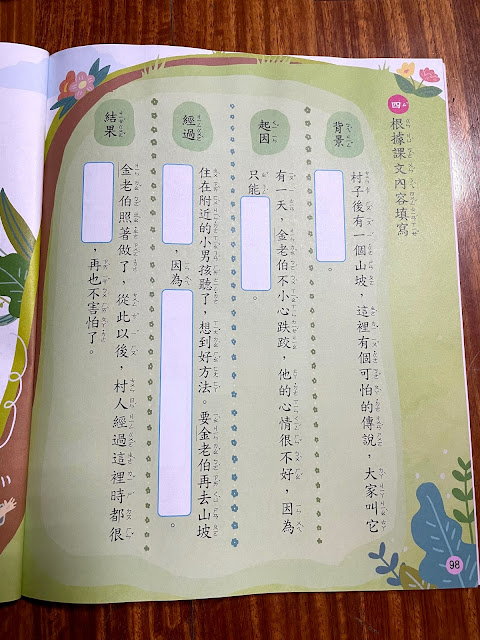 四 根據課文內容填寫
背景
村子後有一個山坡，這裡有個可怕的傳說，大家叫它
。
起因
有一天，金老伯不小心跌跤，他的心情很不好，因為
只能。
經過
住在附近的小男孩聽了，想到好方法。要金老伯再去山坡
，因為。
結果
金老伯照著做了，從此以後，村人經過這裡時都很
，再也不害怕了。
98